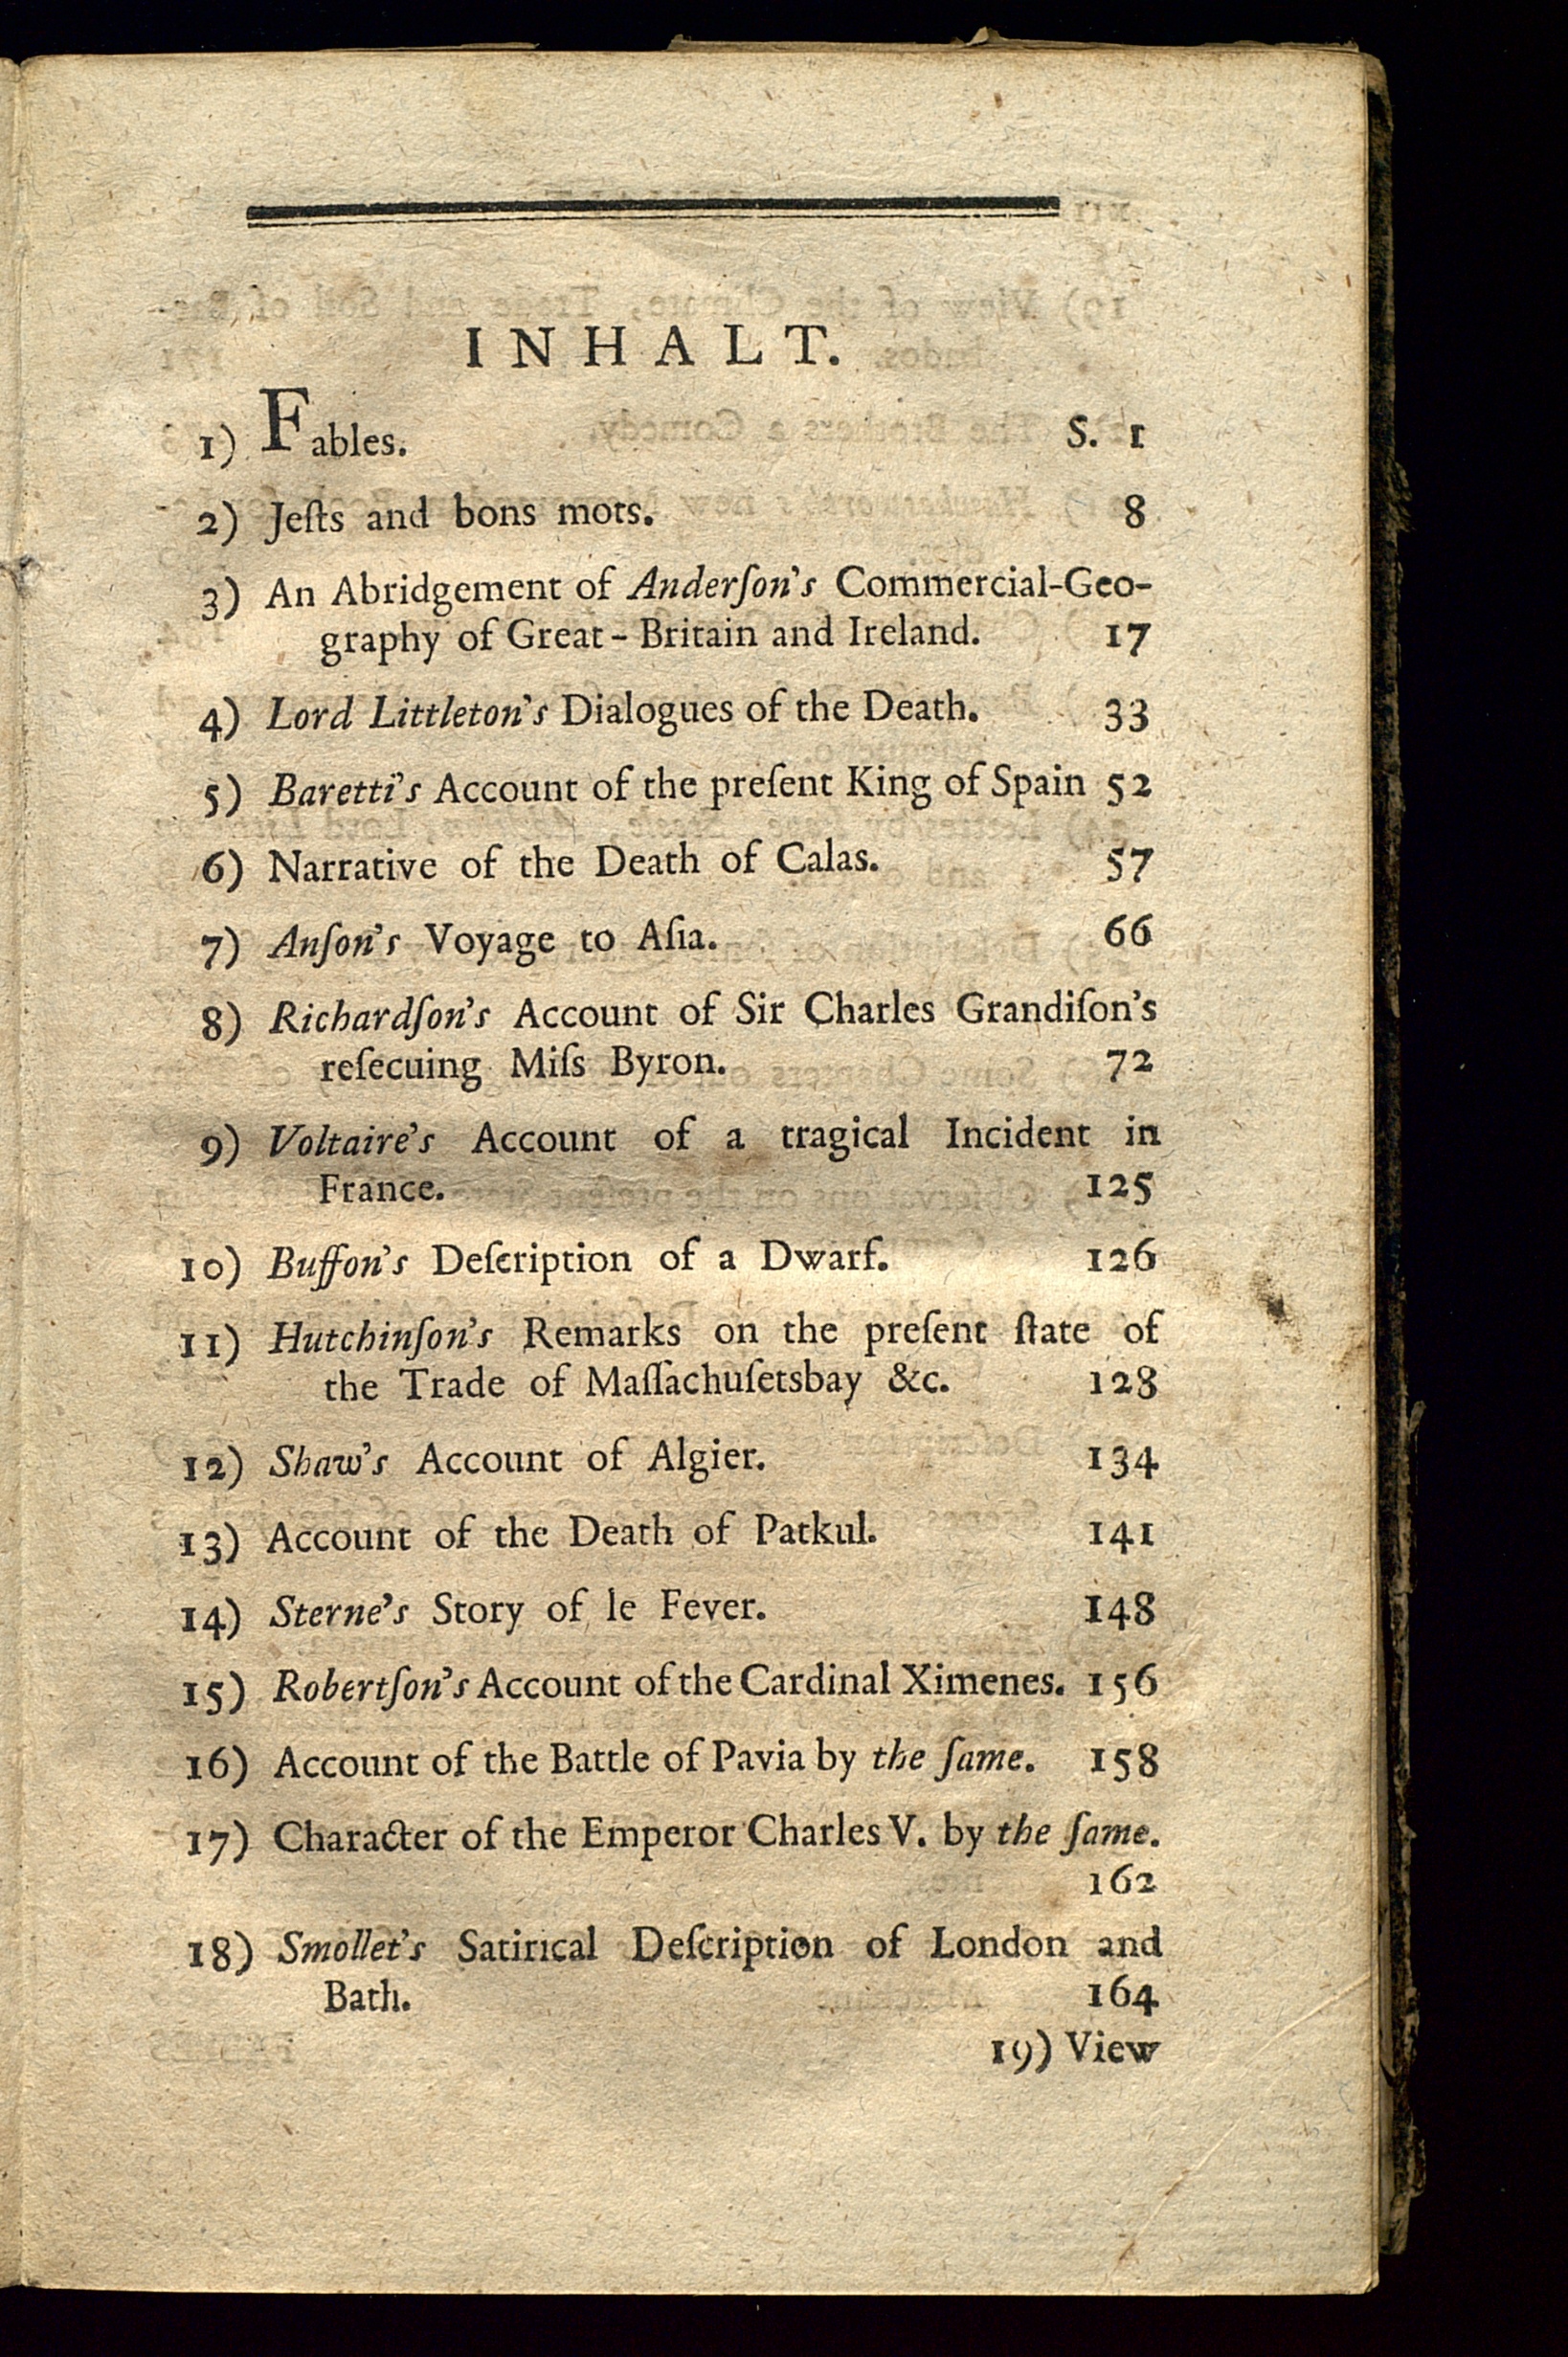 INHALT.
1) Fables. S. 1
2) Jeſts and bons mots. 8
3) An Abridgement of Anderſon's Commercial-Geo-
graphy of Great-Britain and Ireland. 17
4) Lord Littleton's Dialogues of the Death. 33
5) Baretti's Account of the preſent King of Spain 52
6) Narrative of the Death of Calas. 57
7) Anſon's Voyage to Aſia. 66
8) Richardſon's Account of Sir Charles Grandiſon's
reſecuing Miſs Byron. 72
9) Voltaire's Account of a tragical Incident in
France. 125
10) Buffon's Deſcription of a Dwarf. 126
11) Hutchinſon's Remarks on the preſent ſtate of
the Trade of Maſſachuſetsbay &c. 128
12) Shaw's Account of Algier. 134
13) Account of the Death of Patkul. 141
14) Sterne's Story of le Fever. 148
15) Robertſon's Account of the Cardinal Ximenes. 156
16) Account of the Battle of Pavia by the ſame. 158
17) Character of the Emperor Charles V. by the ſame.
162
18) Smollet's Satirical Deſcription of London and
Bath. 164
19) View